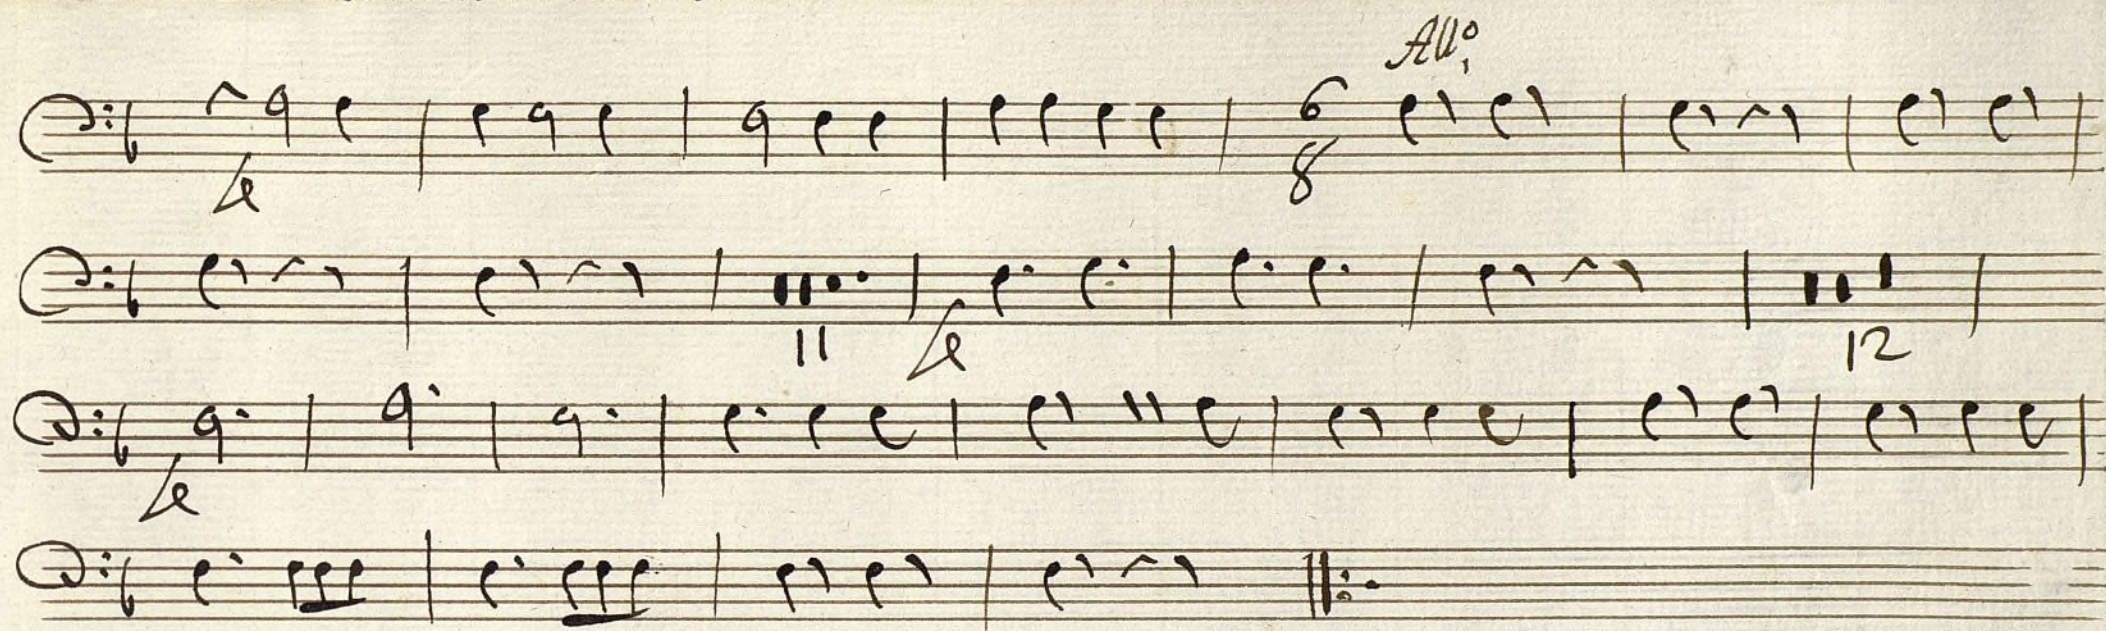 All.º
6
8
11
12